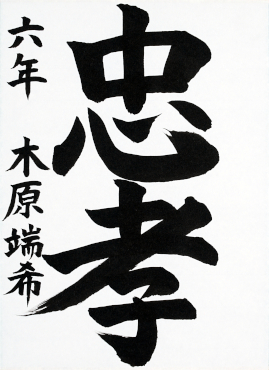 忠孝
六年 木原端希